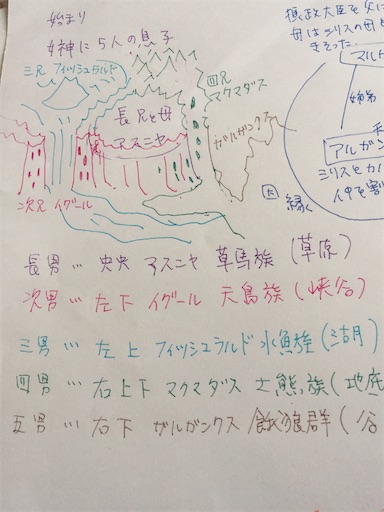 始まり
女神に5人の息子
三兄 フィッシュラルド
四兄
マクマダス
長兄と母
アスニヤ
ガルガンクス
次兄 イグール
摂政大臣を父に
母はミリスの母と
姉弟
アルガン
ミリスとカル
縁く
長男…中央 アスニヤ 草馬族(草原)
次男…左下 イグール 天鳥族(峡谷)
三男…左上 フィッシュラルド 水魚族(湖)
四男…右上下 マクマダス 土熊族(地底
五男…右下 ガルガンクス 餓狼群(谷